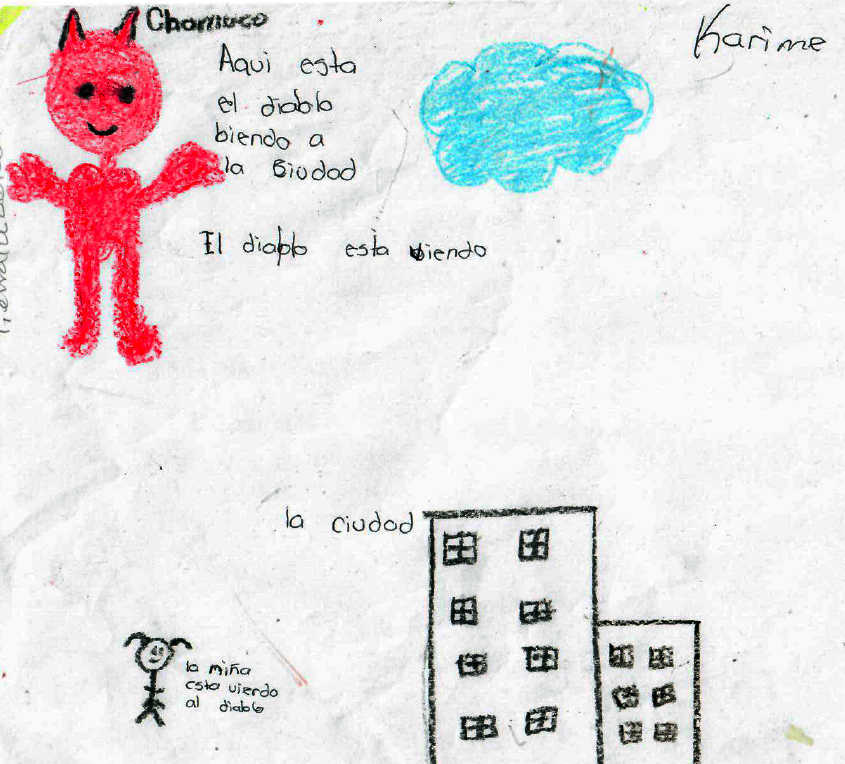 Chamuco
Karime
Aqui esta
el diablo
biendo a
la Siudad
El diablo esta viendo
la ciudad
la miña
esta viendo
al diablo